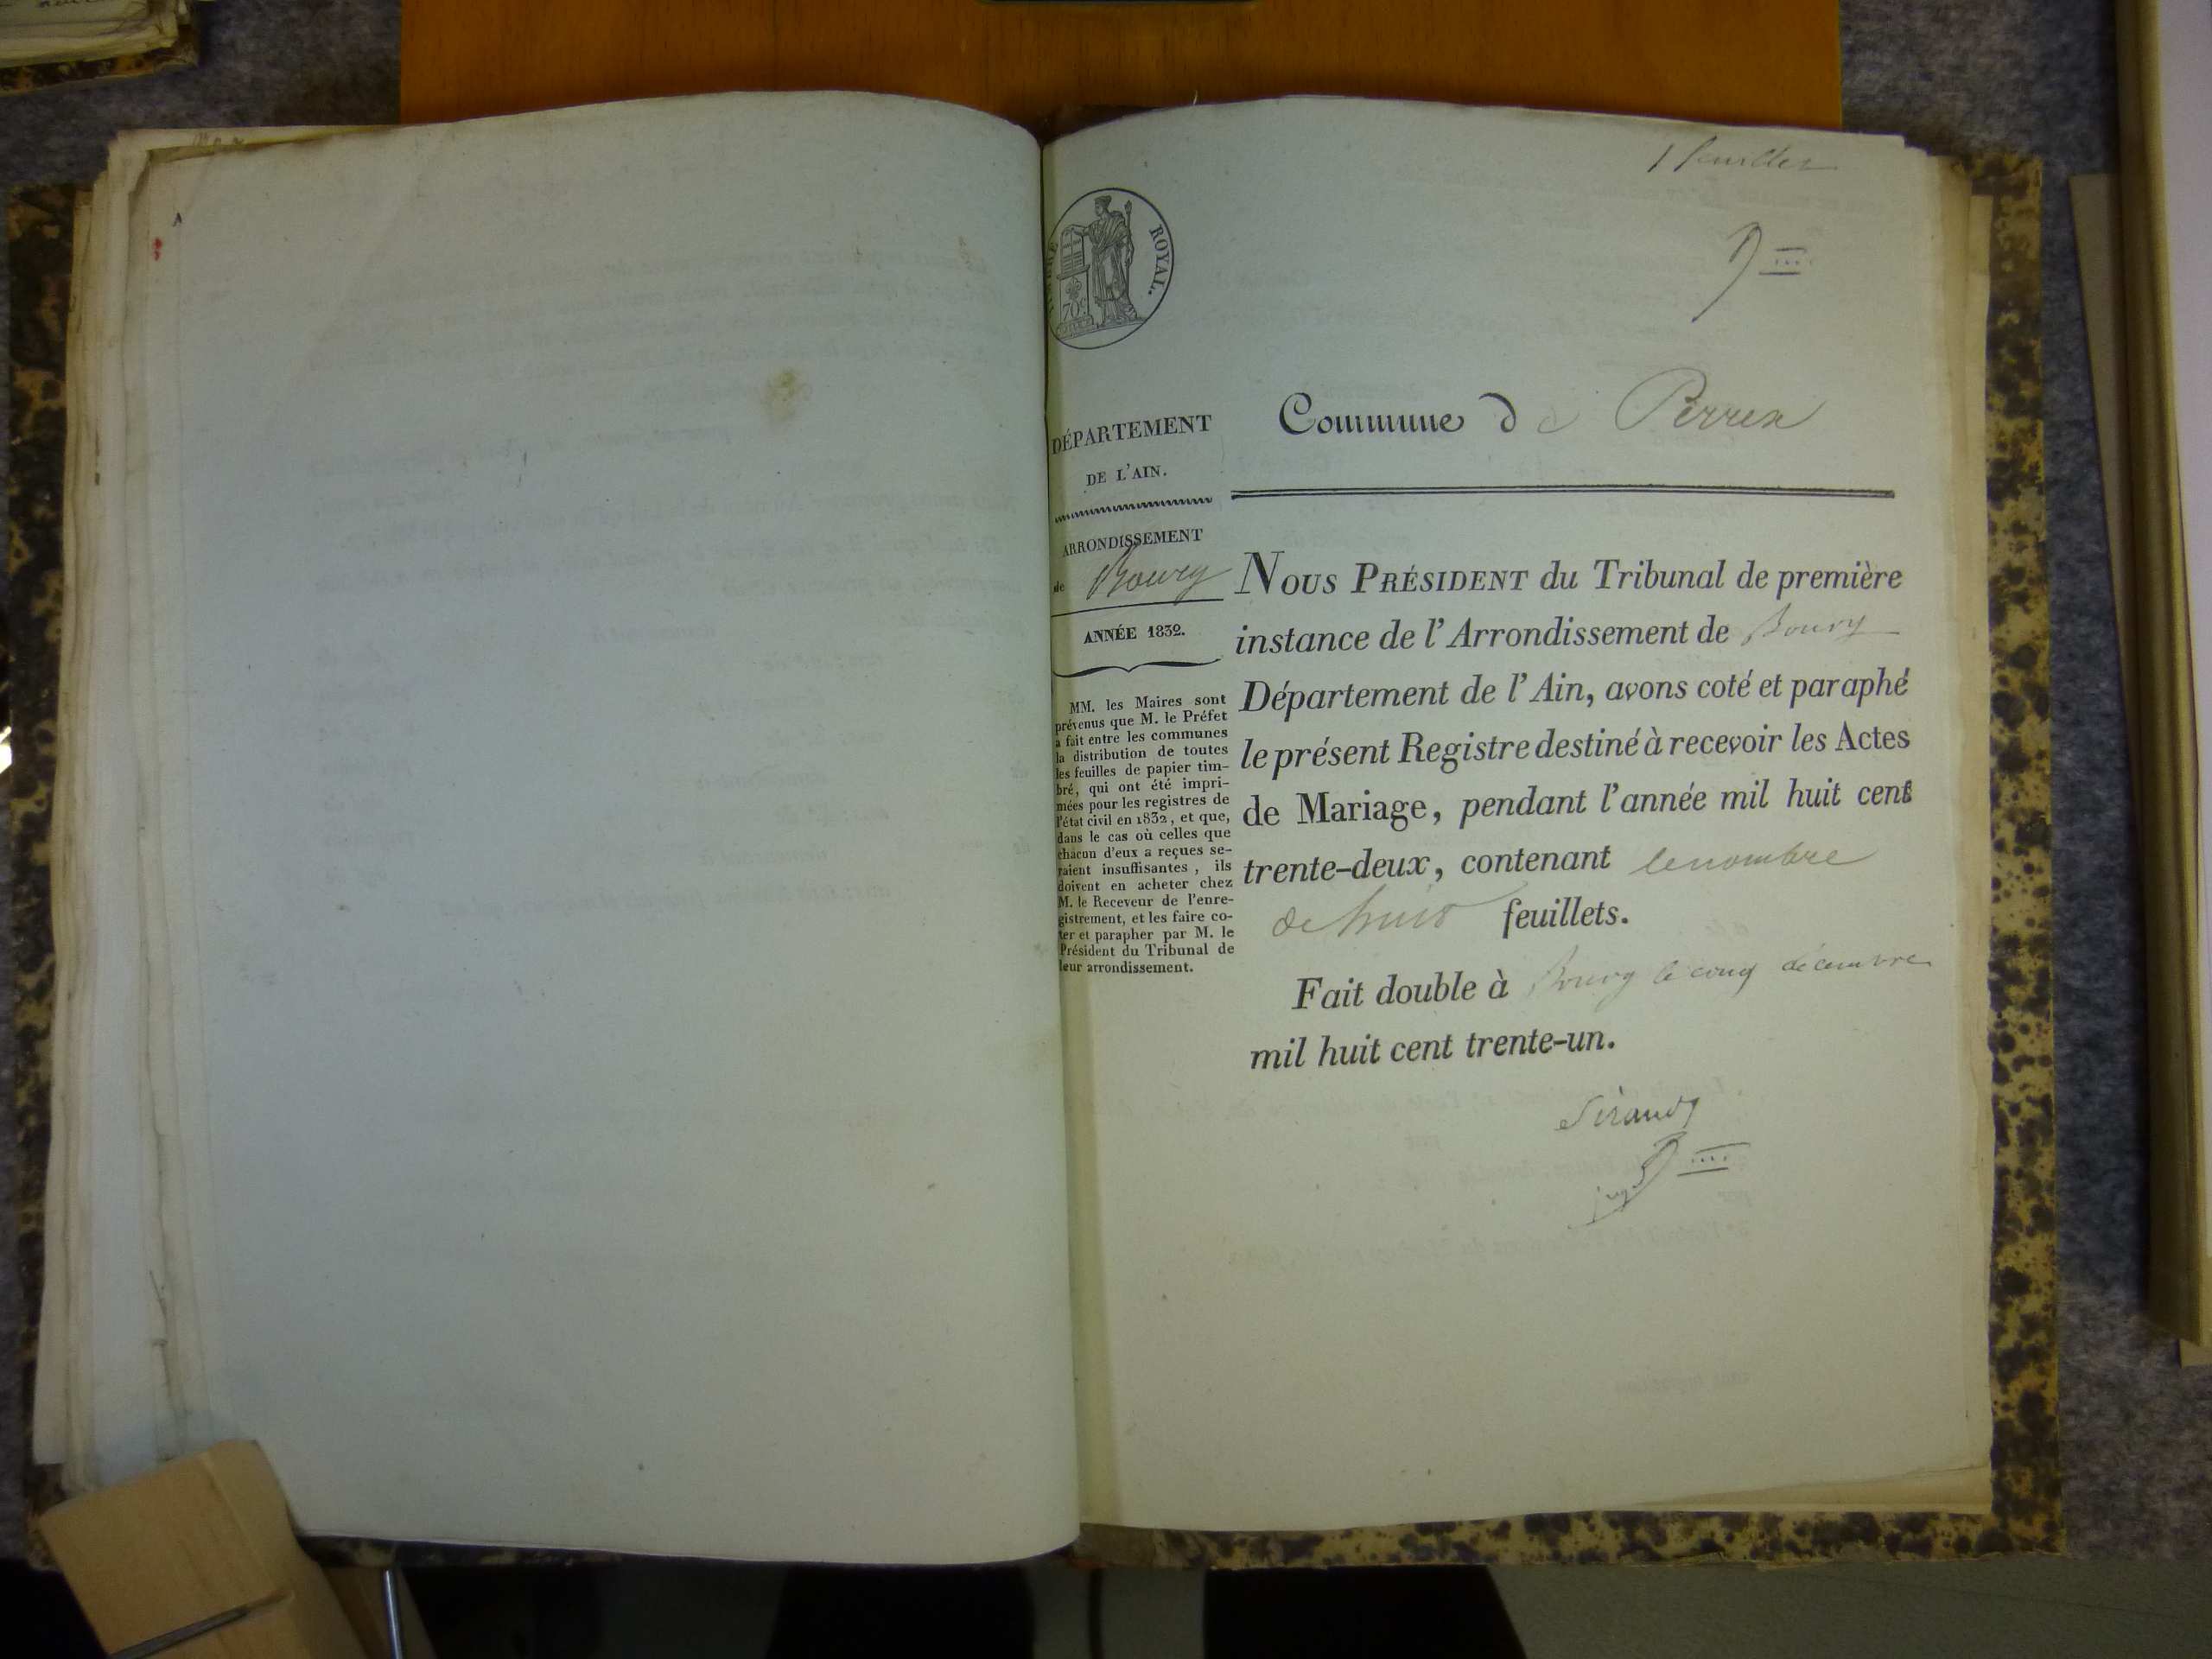 1 feuillet
TIMBRE ROYAL.
70 c
DÉPARTEMENT
DE L'AIN.
ARRONDISSEMENT
de Bourg
ANNÉE 1832.
MM. les Maires sont
prévenus que M. le Préfet
a fait entre les communes
la distribution de toutes
les feuilles de papier tim-
bré, qui ont été impri-
mées pour les registres de
l'état civil en 1832, et que,
dans le cas où celles que
chacun d'eux a reçues se-
raient insuffisantes, ils
doivent en acheter chez
M. le Receveur de l'enre-
gistrement, et les faire co-
ter et parapher par M. le
Président du Tribunal de
leur arrondissement.
Commune de Perrex
NOUS PRÉSIDENT du Tribunal de première
instance de l'Arrondissement de Bourg
Département de l'Ain, avons coté et paraphé
le présent Registre destiné à recevoir les Actes
de Mariage, pendant l'année mil huit cent
trente-deux, contenant le nombre
de huit feuillets.
Fait double à Bourg le cinq décembre
mil huit cent trente-un.